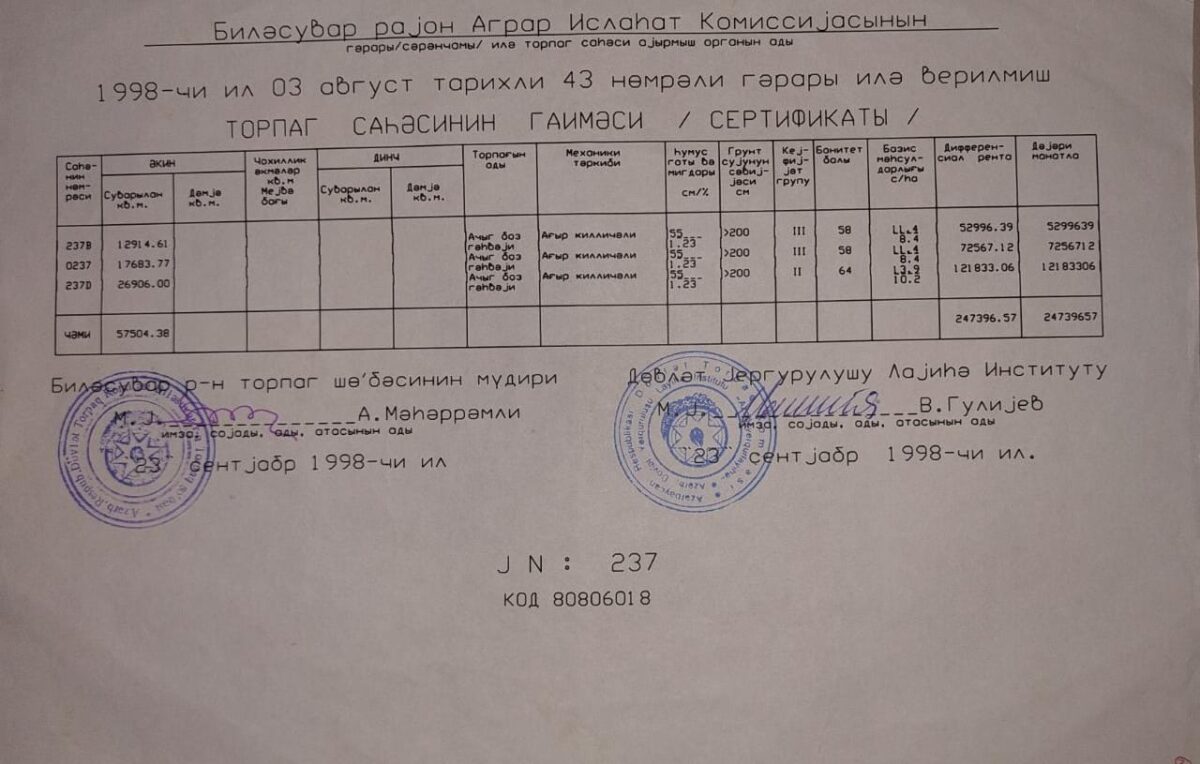 Биләсувар рајон Аграр Ислаһат Комиссијасынын
гәрары/сәрәнчамы/ илә торпаг саһәси ајырмыш органын ады
1998-чи ил 03 август тарихли 43 нөмрәли гәрары илә верилмиш
ТОРПАГ САҺӘСИНИН ГАИМӘСИ / СЕРТИФИКАТЫ /
Саһә-нин нөм-рәси | әкин | Чохиллик әкмәләр кв.м Мејвә бағы | динч | Торпағын ады | Механики тәркиби | һумус гаты вә мигдары см/% | Грунт сујунун сәвиј-јәси см | Кеј-фиј-јәт групу | Бонитет балы | Базис мәһсул-дарлығы с/һа | Дифферен-сиал рента | Дәјәри манатла
Суварылан кв.м. | Дәмјә кв.м. | Суварылан кв.м. | Дәмјә кв.м.
237В 12914.61 Ачыг боз гәһвәји Ағыр килличәли 55 1.23 >200 III 58 LL.4 8.4 52996.39 5299639
0237 17683.77 Ачыг боз гәһвәји Ағыр килличәли 55 1.23 >200 III 58 LL.4 8.4 72567.12 7256712
237D 26906.00 Ачыг боз гәһвәји Ағыр килличәли 55 1.23 >200 II 64 L3.9 10.2 121833.06 12183306
чәми 57504.38 247396.57 24739657
Биләсувар р-н торпаг шө'бәсинин мүдири
М.Ј. ______________А.Мәһәррәмли
имза, сојады, ады, атасынын ады
23 сентјабр 1998-чи ил
Дөвләт Јергурулушу Лајиһә Институту
М.Ј. ______________В.Гулијев
имза, сојады, ады, атасынын ады
23 сентјабр 1998-чи ил.
J N : 237
КОД 80806018